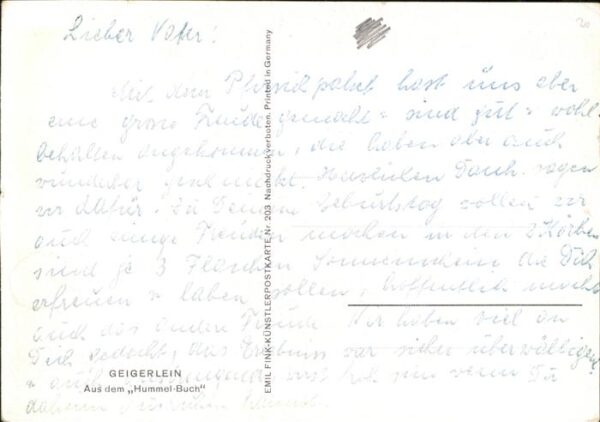 Lieber Vater!
Mit dem Pfirsichpaket hast uns aber
eine grosse Freude gemacht sind gut wohl-
behalten angekommen, die haben aber auch
wunderbar geschmeckt. Herzlichen Dank sagen
wir dafür. Zu Deinem Geburtstag wollen wir
auch einige Freuden machen in den 3 Körben
sind je 3 Flaschen Sonnenschein die Dich
erfreuen laben sollen, hoffentlich macht
auch das andere Freude. Wir haben viel an
Dich gedacht, das Erlebnis war sicher überwältigend
auch Du
daheim
GEIGERLEIN
Aus dem „Hummel-Buch"
EMIL FINK-KÜNSTLERPOSTKARTE Nr. 203 Nachdruck verboten. Printed in Germany
20